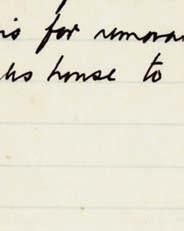 is for remova
house to